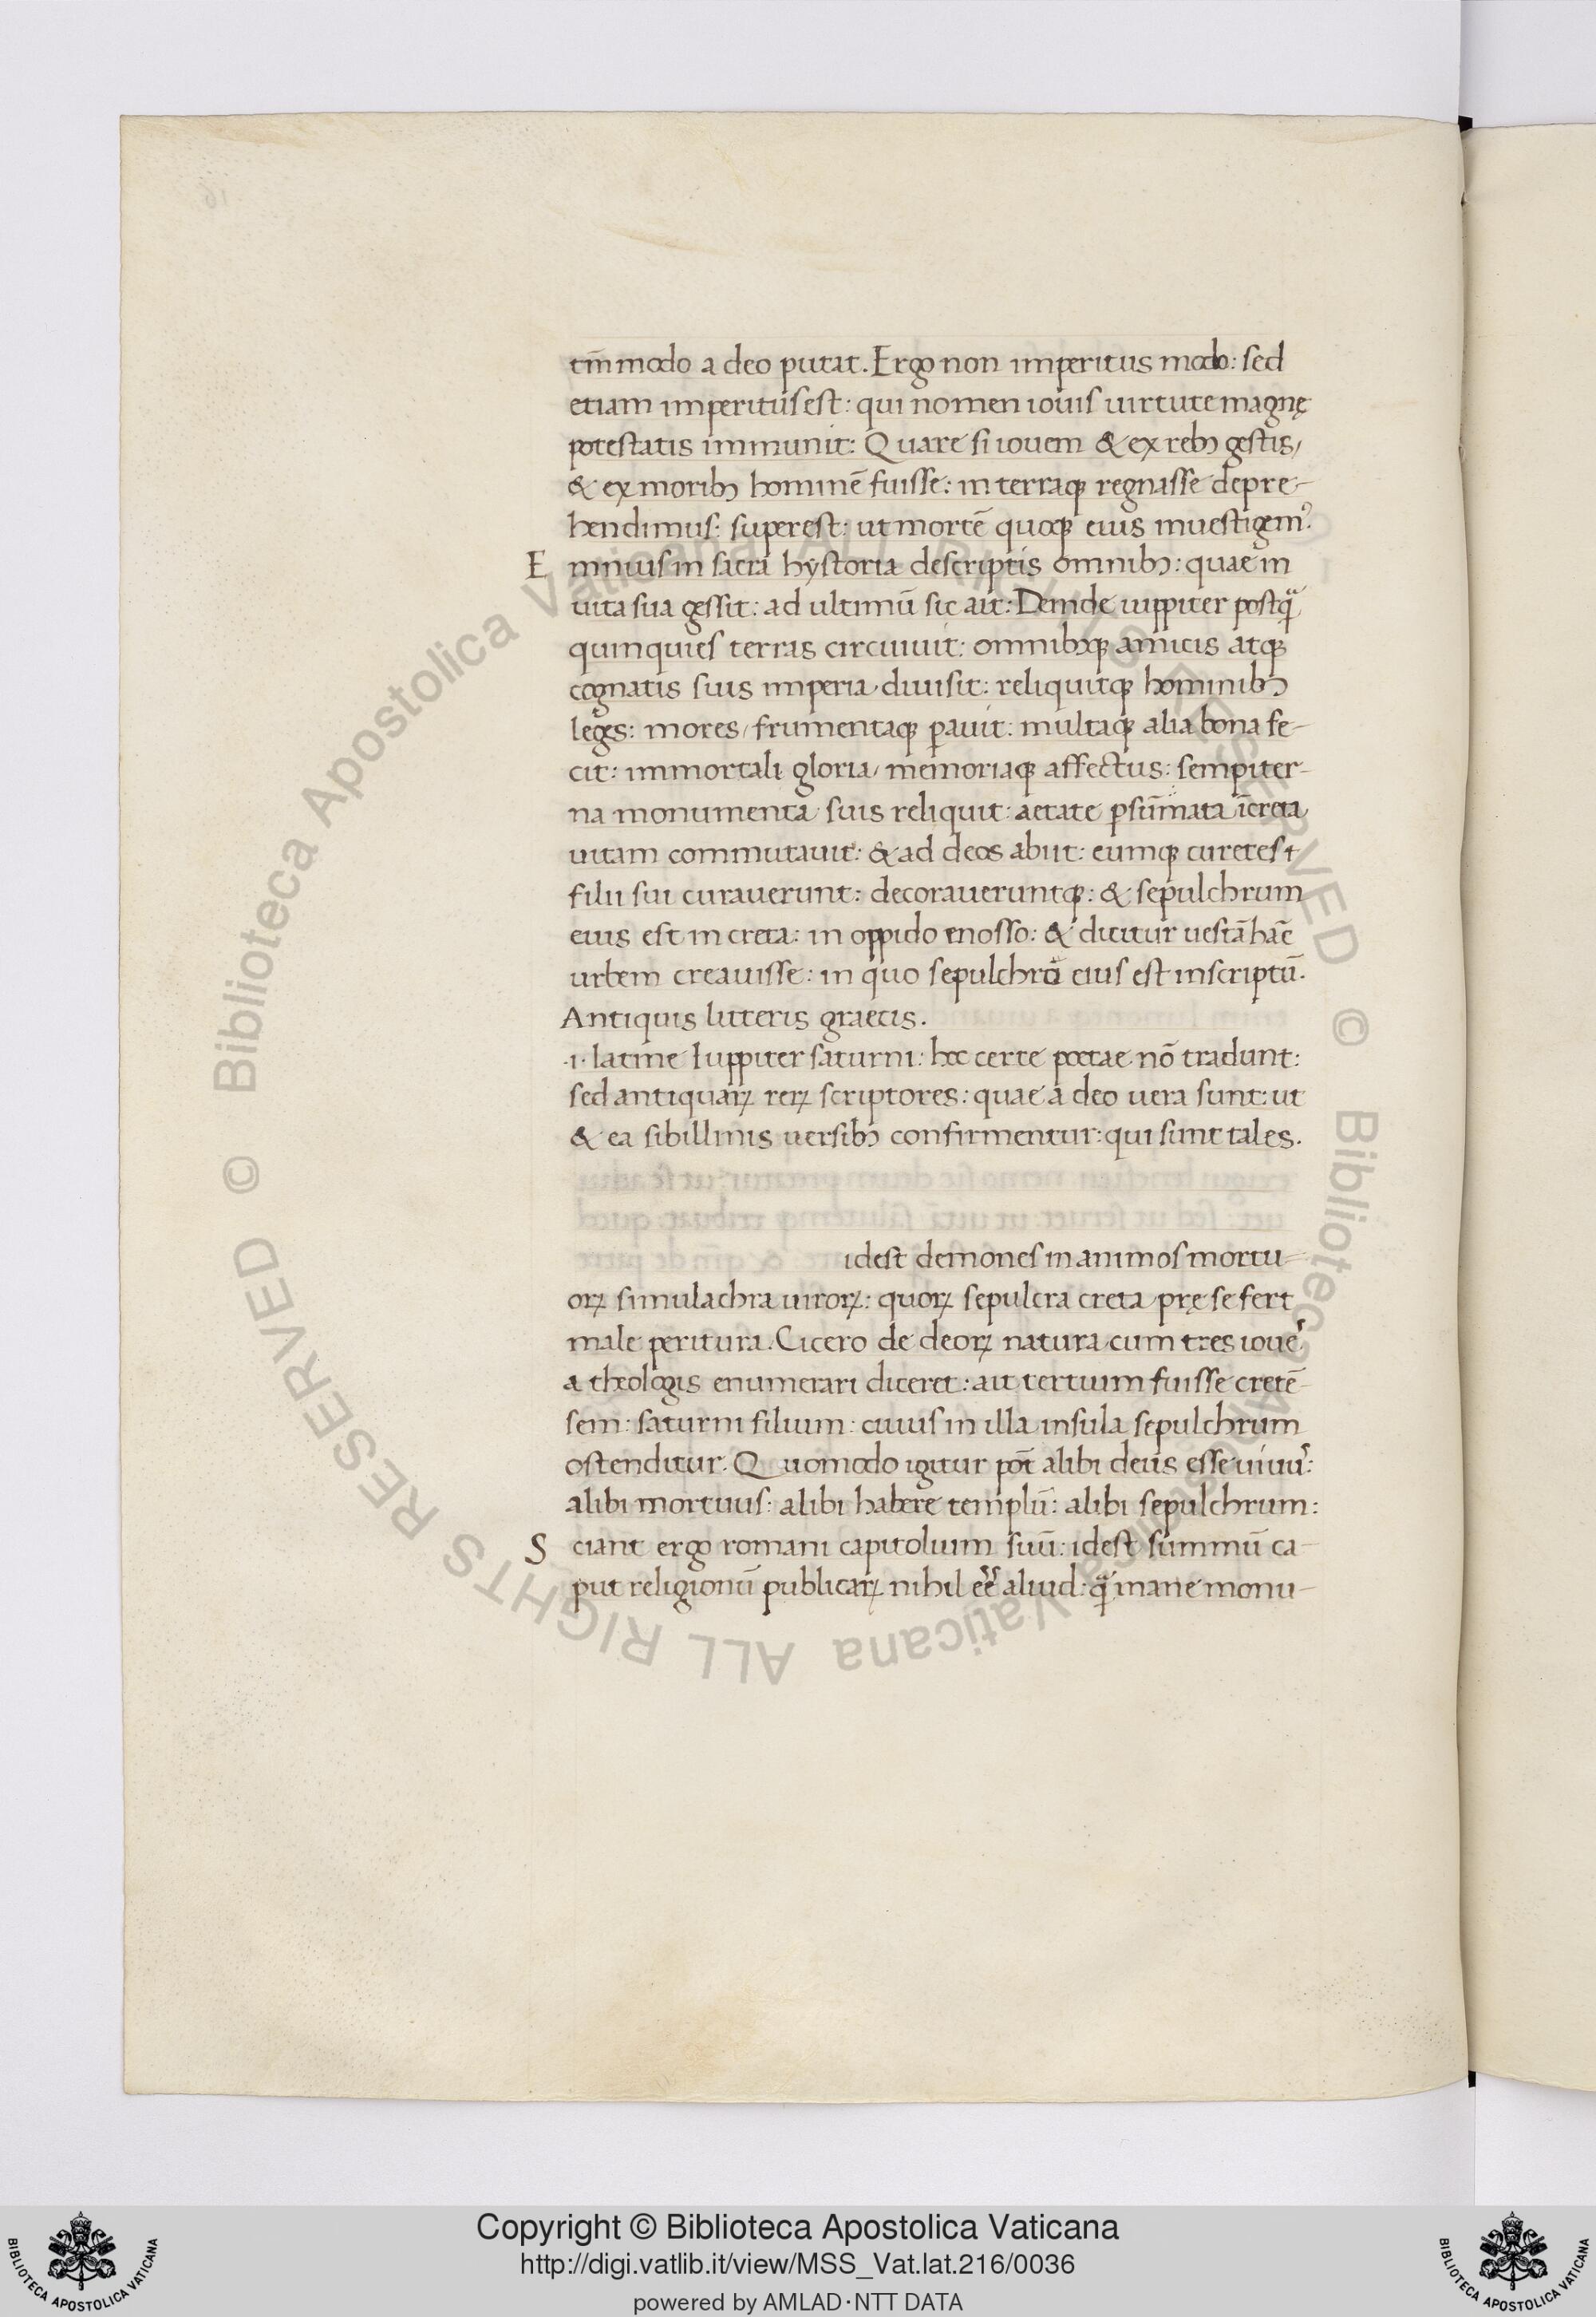 tm̄modo a deo putat. Ergo non imperitus modo: sed
etiam imperitus est: qui nomen iouis uirtute magnę
potestatis immunit: Quare si iouem & ex rebꝫ gestis,
& ex moribꝫ hominē fuisse: in terraqꝫ regnasse depre-
hendimus: superest: ut mortē quoqꝫ eius inuestigemꝰ.
E nnius in sacra hystoria descriptis omnibꝫ: quae in
uita sua gessit: ad ultimū sic ait: Deinde iuppiter postqᷓ
quinquies terras circuiuit: omnibꝫqꝫ amicis atqꝫ
cognatis suis imperia diuisit: reliquitqꝫ hominibꝫ
leges: mores, frumentaqꝫ ꝑauit: multaqꝫ alia bona fe-
cit: immortali gloria, memoriaqꝫ affectus: sempiter-
na monumenta suis reliquit: aetate ꝑsūmata ī creta
uitam commutauit: & ad deos abiit: eumqꝫ curetes
filii sui curauerunt: decoraueruntqꝫ: & sepulchrum
eius est in creta: in oppido enosso: & dicitur uestā hāc
urbem creauisse: in quo sepulchro eius est inscriptū.
Antiquis litteris graecis.
.i. latine Iuppiter saturni: hoc certe poetae nō tradunt:
sed antiquaꝝ reꝝ scriptores: quae a deo uera sunt: ut
& ea sibillinis uersibꝫ confirmentur: qui sunt tales.
idest demones in animos mortu-
oꝝ simulachra uiroꝝ: quoꝝ sepulcra creta prę se fert
male peritura. Cicero de deoꝝ natura, cum tres ioue˜s
a theologis enumerari diceret: ait tertium fuisse cretē-
sem: saturni filium: cuius in illa insula sepulchrum
ostenditur. Quomodo igitur pōt alibi deus esse uiuu˜s:
alibi mortuus: alibi habere templū: alibi sepulchrum:
S ciant ergo romani capitolium suū: idest summū ca-
put religionū publicaꝝ nihil eē aliud: qᷓ inane monu-
Copyright © Biblioteca Apostolica Vaticana
http://digi.vatlib.it/view/MSS_Vat.lat.216/0036
powered by AMLAD·NTT DATA
BIBLIOTECA APOSTOLICA VATICANA
BIBLIOTECA APOSTOLICA VATICANA
© Biblioteca Apostolica Vaticana ALL RIGHTS RESERVED © Biblioteca Apostolica Vaticana ALL RIGHTS RESERVED